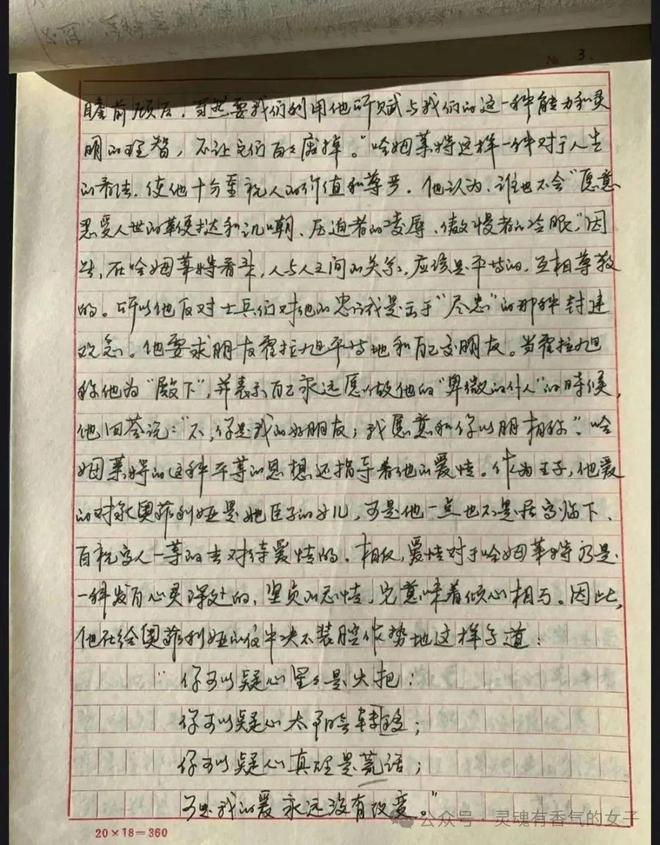 No 3.
瞻前顾后,当然要我们利用他所赋与我们的这一种能力和灵
明的理智,不让它们白白废掉。”哈姆莱特这样一种对于人生
的看法,使他十分重视人的价值和尊严。他认为,谁也不会“愿意
忍受人世的鞭挞和讥嘲、压迫者的凌辱、傲慢者的冷眼”,因
此,在哈姆莱特看来,人与人之间的关系,应该是平等的,互相尊敬
的。所以他反对士兵们对他的忠诚是出于“尽忠”的那种封建
观念。他要求朋友霍拉旭平等地和自己交朋友。当霍拉旭
称他为“殿下”,并表示自己永远愿做他的“卑微的仆人”的时候,
他回答说:“不,你是我的好朋友;我愿意和你以朋相称”。哈
姆莱特的这种平等的思想还指导着他的爱情。作为王子,他爱
的对象奥菲利娅是他臣子的女儿,可是他一点也不是居高临下、
自视高人一等的去对待爱情的。相反,爱情对于哈姆莱特乃是
一种发自心灵深处的,坚贞的恋情,它意味着倾心相与。因此,
他在给奥菲利娅的信中决不装腔作势地这样写道:
“你可以疑心星星是火把;
你可以疑心太阳会转移;
你可以疑心真理是谎话;
可是我的爱永远没有改变。”
公众号·灵魂有香气的女子
20×18=360